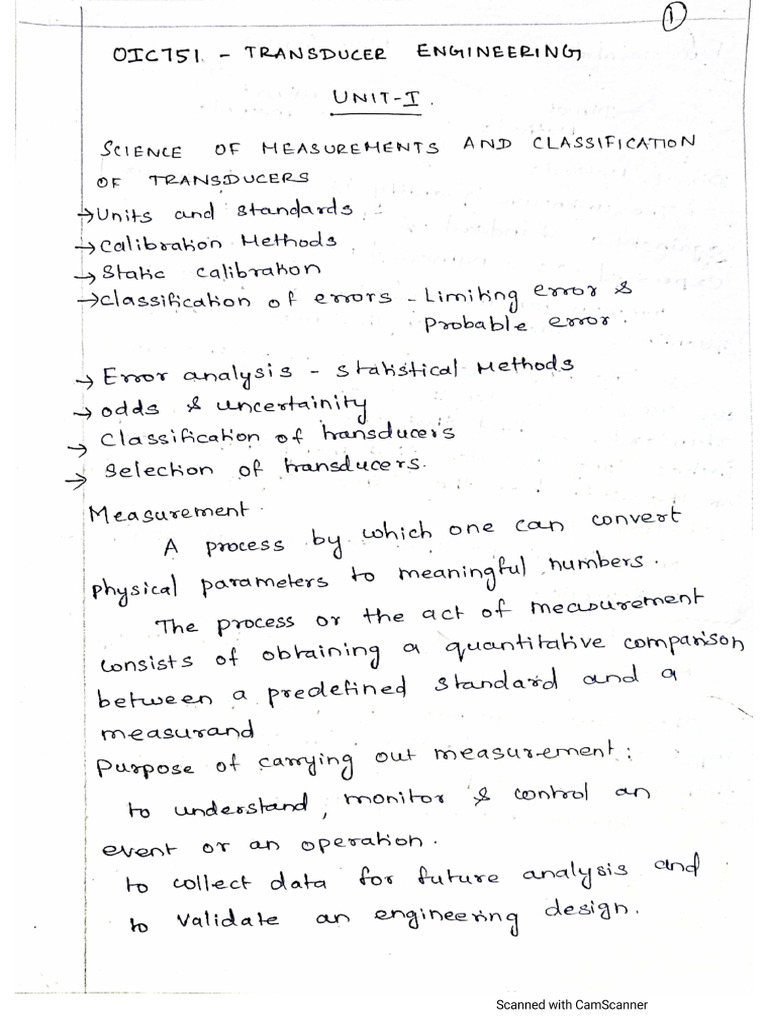 1
OIC751 - TRANSDUCER ENGINEERING
UNIT-I.
SCIENCE OF MEASUREMENTS AND CLASSIFICATION
OF TRANSDUCERS
→Units and standards
→Calibration Methods
→Static calibration
→Classification of errors - Limiting error &
Probable error.
→ Error analysis - Statistical Methods
→ odds & uncertainity
→ Classification of transducers
→ Selection of transducers.
Measurement.
A process by which one can convert
physical parameters to meaningful numbers.
The process or the act of measurement
consists of obtaining a quantitative comparison
between a predefined standard and a
measurand
Purpose of carrying out measurement:
to understand, monitor & control an
event or an operation.
to collect data for future analysis and
to validate an engineering design.
Scanned with CamScanner